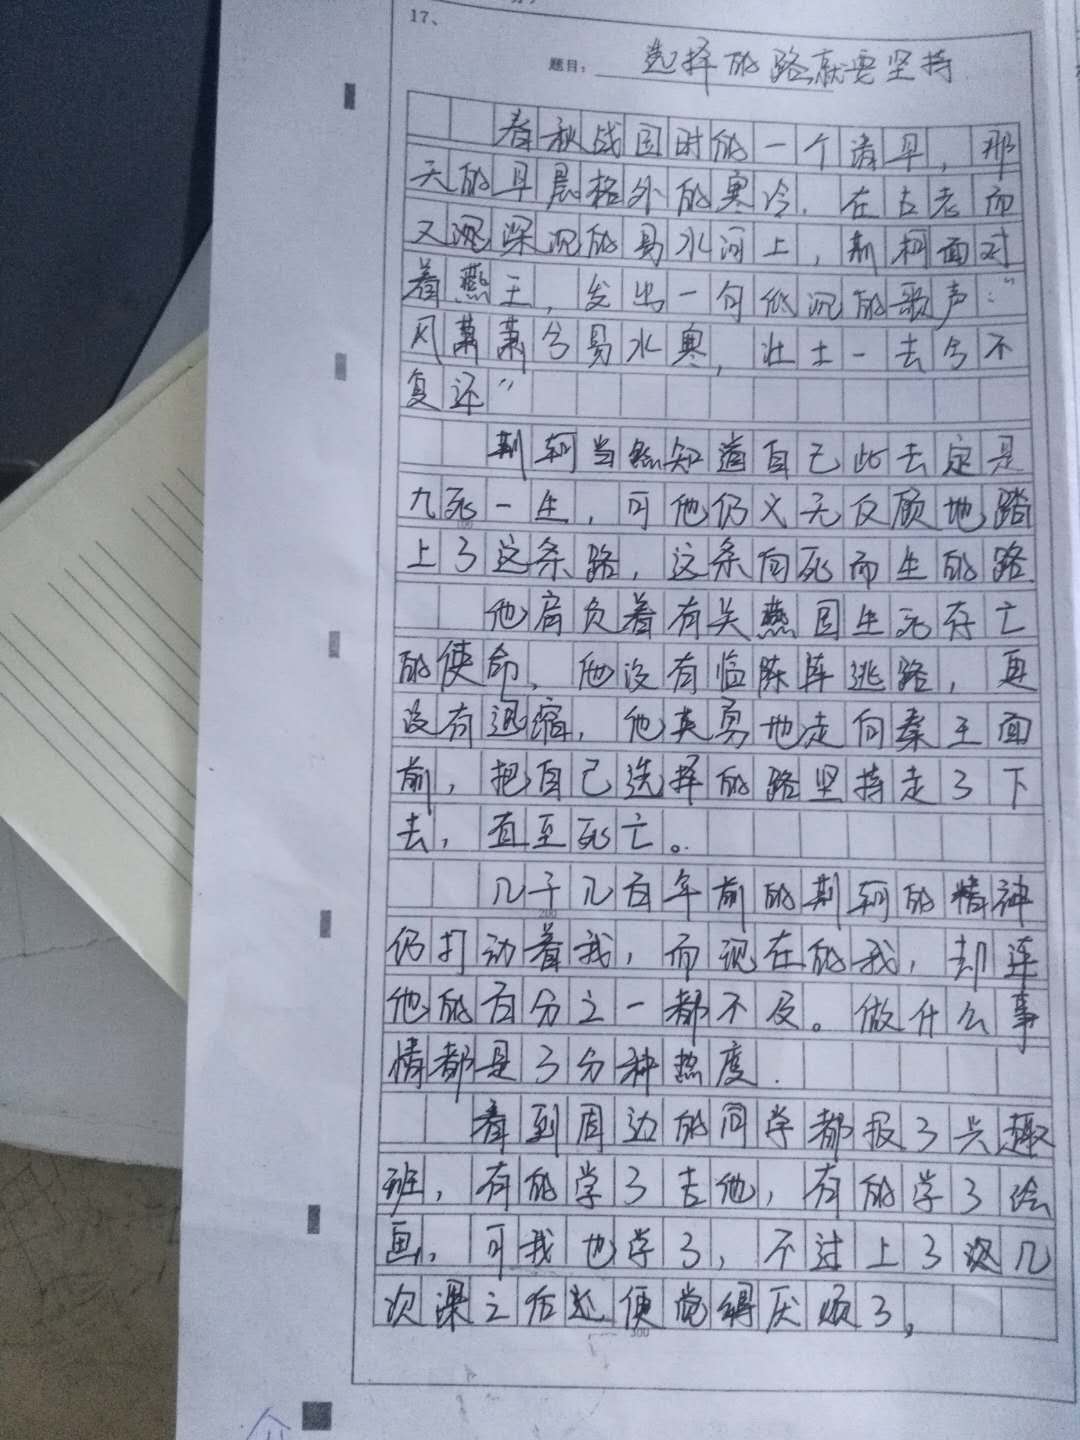 17、
题目： 选择的路就要坚持
春秋战国时的一个清早，那
天的早晨格外的寒冷．在古老而
又深沉的易水河上，荆柯面对
着燕王，发出一句低沉的歌声：“
风萧萧兮易水寒，壮士一去兮不
复还”
荆轲当然知道自己此去定是
九死一生，可他仍义无反顾地踏
上了这条路，这条向死而生的路．
他肩负着有关燕国生死存亡
的使命，他没有临阵逃路，更
没有退缩，他英勇地走向秦王面
前，把自己选择的路坚持走了下
去，直至死亡。
几千几百年前的荆轲的精神
仍打动着我，而现在的我，却连
他的百分之一都不及。做什么事
情都是了分种热度．
看到周边的同学都报了兴趣
班，有的学了吉他，有的学了绘
画，可我也学了，不过上了几
次课之后便觉得厌烦了，
300